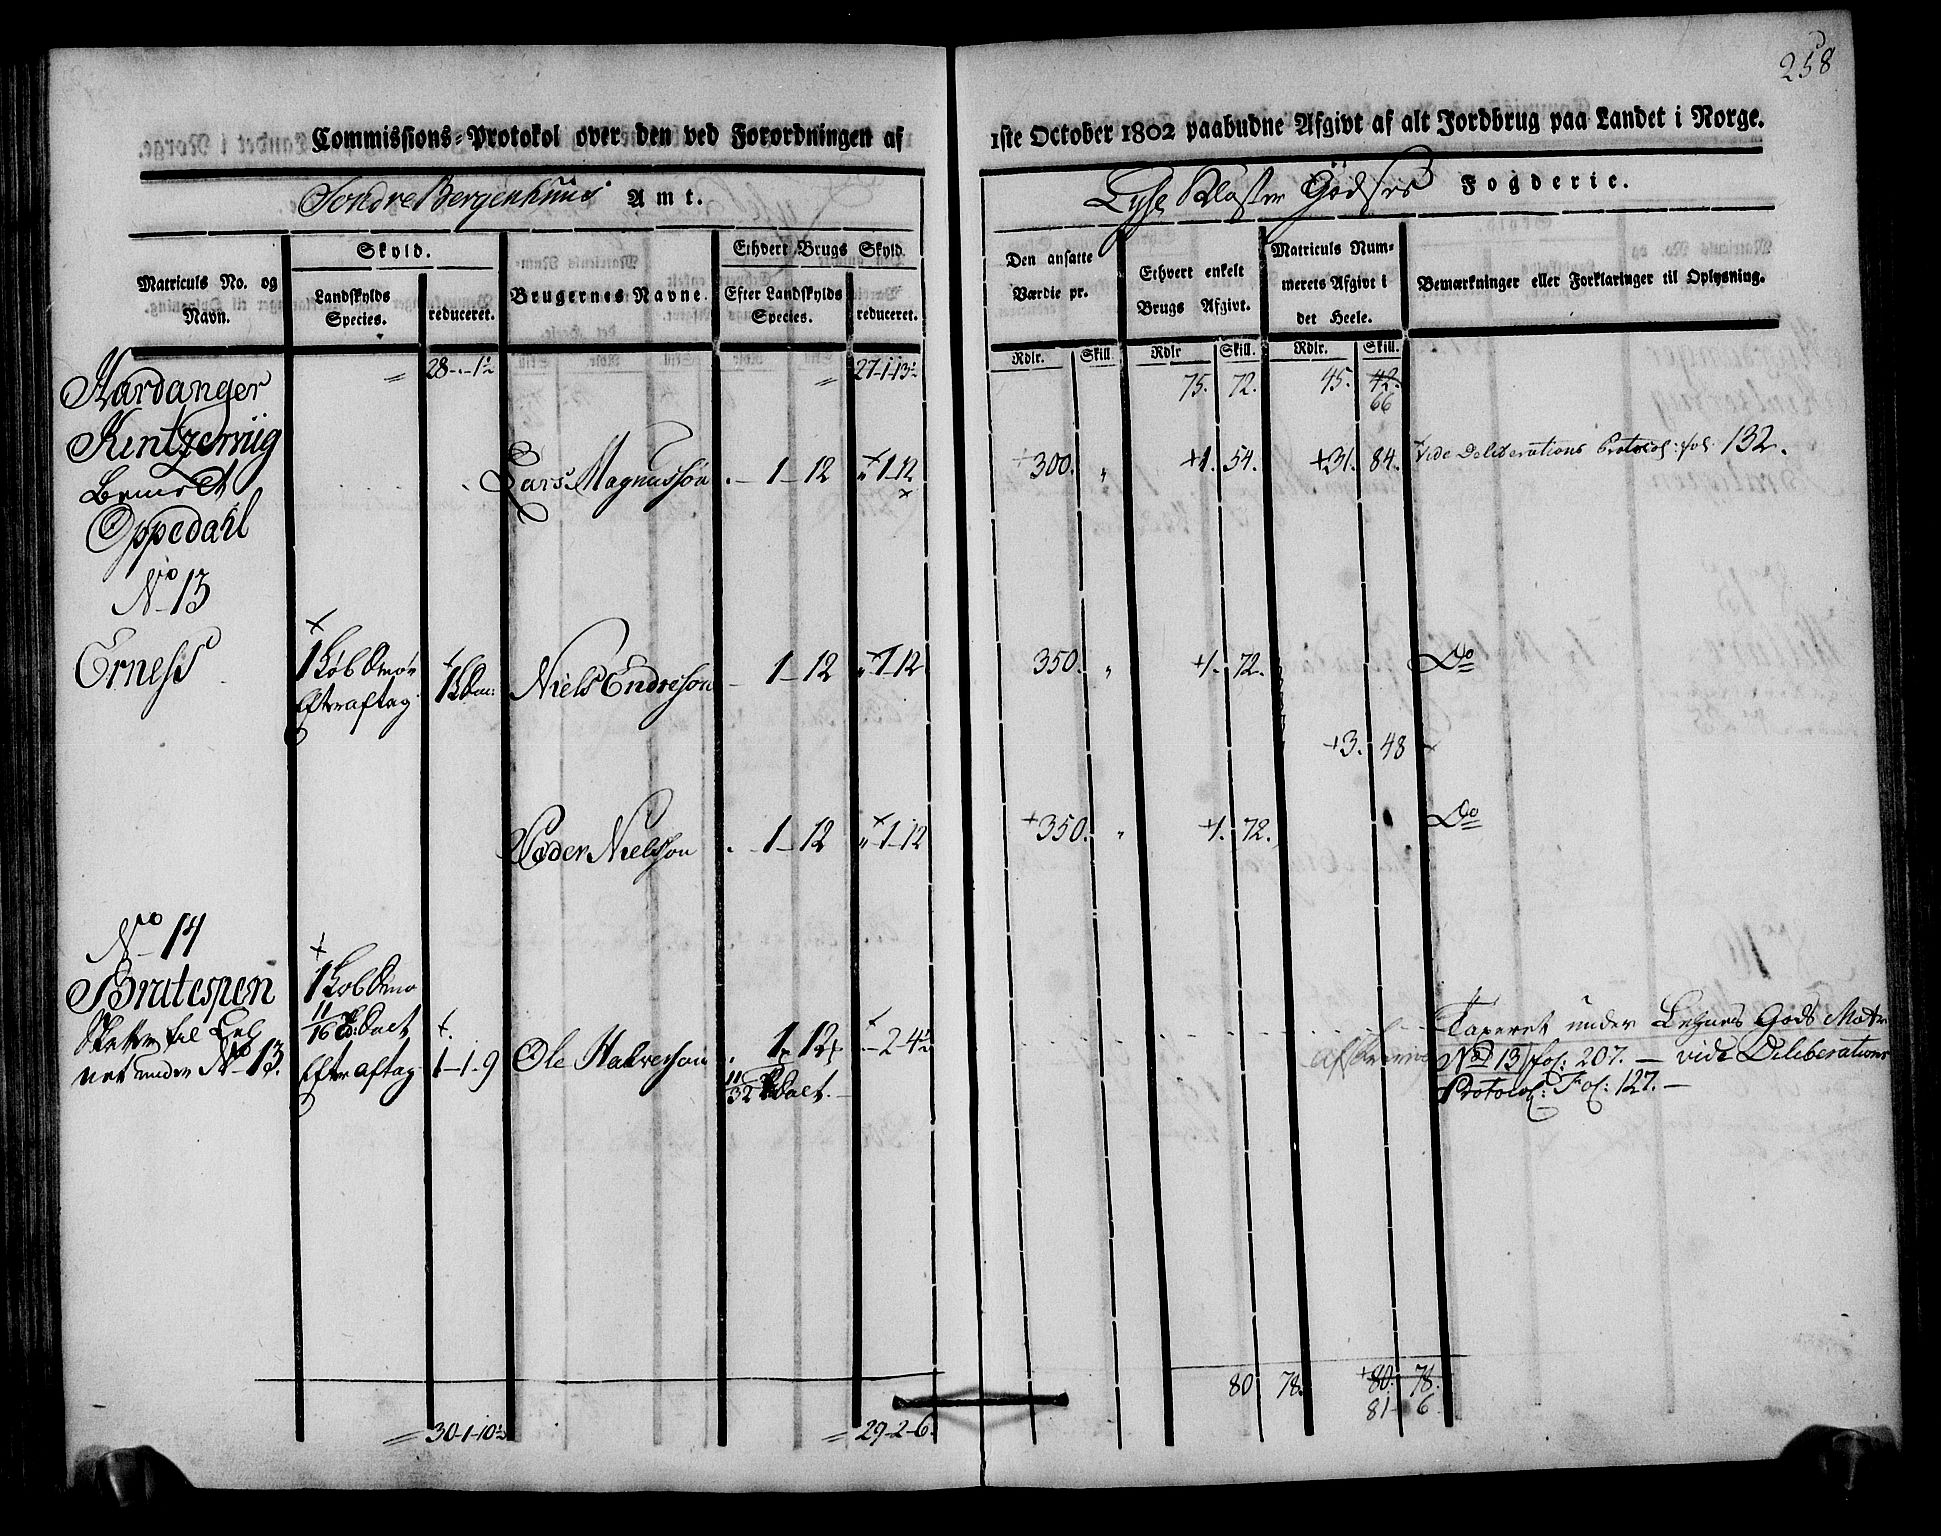 258
Commissions-Protokol over den ved Forordningen af 1ste October 1802 paabudne Afgivt af alt Jordbrug paa Landet i Norge.
Sondre Bergenhuus Amt. Lyse Kloster Godses Fogderie.
Matriculs No. og Navn.
Skyld.
Landskylds Species.
reduceret.
Brugernes Navne.
Ethvert Brugs Skyld.
Efter Landskylds Species.
reduceret.
Den ansatte Værdie pr.
Rdlr. Skill.
Ethvert enkelt Brugs Afgivt.
Rdlr Skill.
Matriculs Nummerets Afgivt i det Heele.
Rdlr. Skill.
Bemærkninger eller Forklaringer til Oplysning.
Hardanger = 28-.-1½ = 27-1-13½ 75. 72. 45. 42.
66
Kintzerviig
Bemeldt Lars Magnussøn . - 1 - 12 " 1-12 300. " +1. 54. +31. 84. Vide Deliberations Protocol: fol: 132.
Oppedahl
No 13
Erness 1 Løb Smør Niels Endresøn - 1 - 12 " 1-12 350. " +1. 72. Do
Efter aftag
+3. 48
Peder Nielssøn . - 1 - 12 " 1-12 +350. " +1. 72. Do
No 14
Brutespen 1 Løb Smør
11/16 Efter aftag 1-1-9 Ole Halversøn . 1. 12 - 2-4½
under No 13. 11/32
Taxeret under Lehnes Gods Matr
No 13 fol: 207. - vide Deliberations
Protocol: Fol: 127. -
80 78. +80. 78.
81- 6
= 30-1-10½ = 29-2-6.